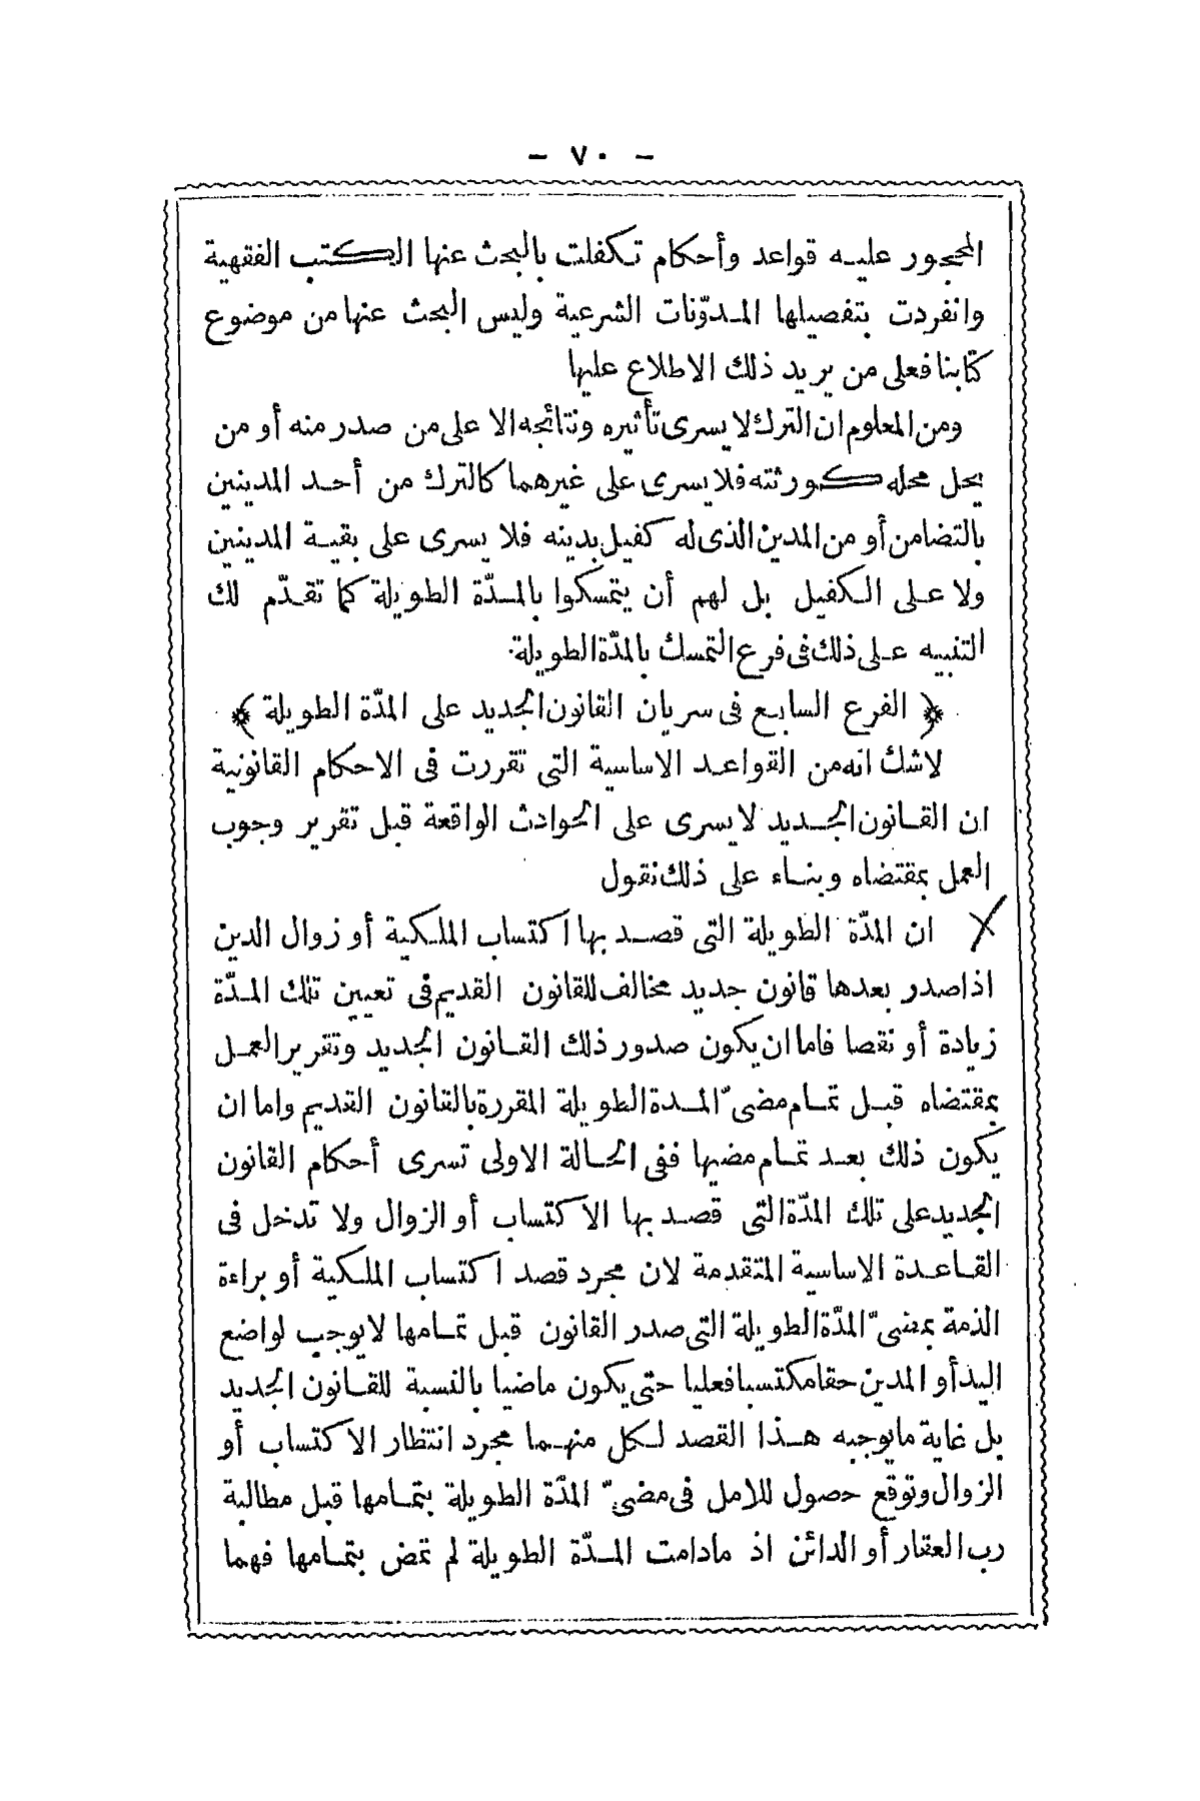 - ٧٠ -
المحجور عليه قواعد وأحكام تكفلت بالبحث عنها الكتب الفقهية
وانفردت بتفصيلها المدوّنات الشرعية وليس البحث عنها من موضوع
كتابنا فعلى من يريد ذلك الاطلاع عليها
ومن المعلوم ان الترك لا يسرى تأثيره ونتائجه الا على من صدر منه أو من
يحل محله كورثته فلا يسرى على غيرهما كالترك من أحد المدينين
بالتضامن أو من المدين الذى له كفيل بدينه فلا يسرى على بقية المدينين
ولا على الكفيل بل لهم أن يتمسكوا بالمدّة الطويلة كما تقدّم لك
التنبيه على ذلك فى فرع التمسك بالمدّة الطويلة
﴿ الفرع السابع فى سريان القانون الجديد على المدّة الطويلة ﴾
لاشك انه من القواعد الاساسية التى تقررت فى الاحكام القانونية
ان القانون الجديد لا يسرى على الحوادث الواقعة قبل تقرير وجوب
العمل بمقتضاه وبناء على ذلك نقول
ان المدّة الطويلة التى قصد بها اكتساب الملكية أو زوال الدين
اذا صدر بعدها قانون جديد مخالف للقانون القديم فى تعيين تلك المدّة
زيادة أو نقصا فاما ان يكون صدور ذلك القانون الجديد وتقرير العمل
بمقتضاه قبل تمام مضىّ المدة الطويلة المقررة بالقانون القديم واما ان
يكون ذلك بعد تمام مضيها ففى الحالة الاولى تسرى أحكام القانون
الجديد على تلك المدّة التى قصد بها الاكتساب أو الزوال ولا تدخل فى
القاعدة الاساسية المتقدمة لان مجرد قصد اكتساب الملكية أو براءة
الذمة بمضىّ المدّة الطويلة التى صدر القانون قبل تمامها لا يوجب لواضع
اليد أو المدين حقا مكتسبا فعليا حتى يكون ماضيا بالنسبة للقانون الجديد
بل غاية ما يوجبه هذا القصد لكل منهما مجرد انتظار الاكتساب أو
الزوال وتوقع حصول للامل فى مضىّ المدّة الطويلة بتمامها قبل مطالبة
رب العقار أو الدائن اذ مادامت المدّة الطويلة لم تمض بتمامها فهما